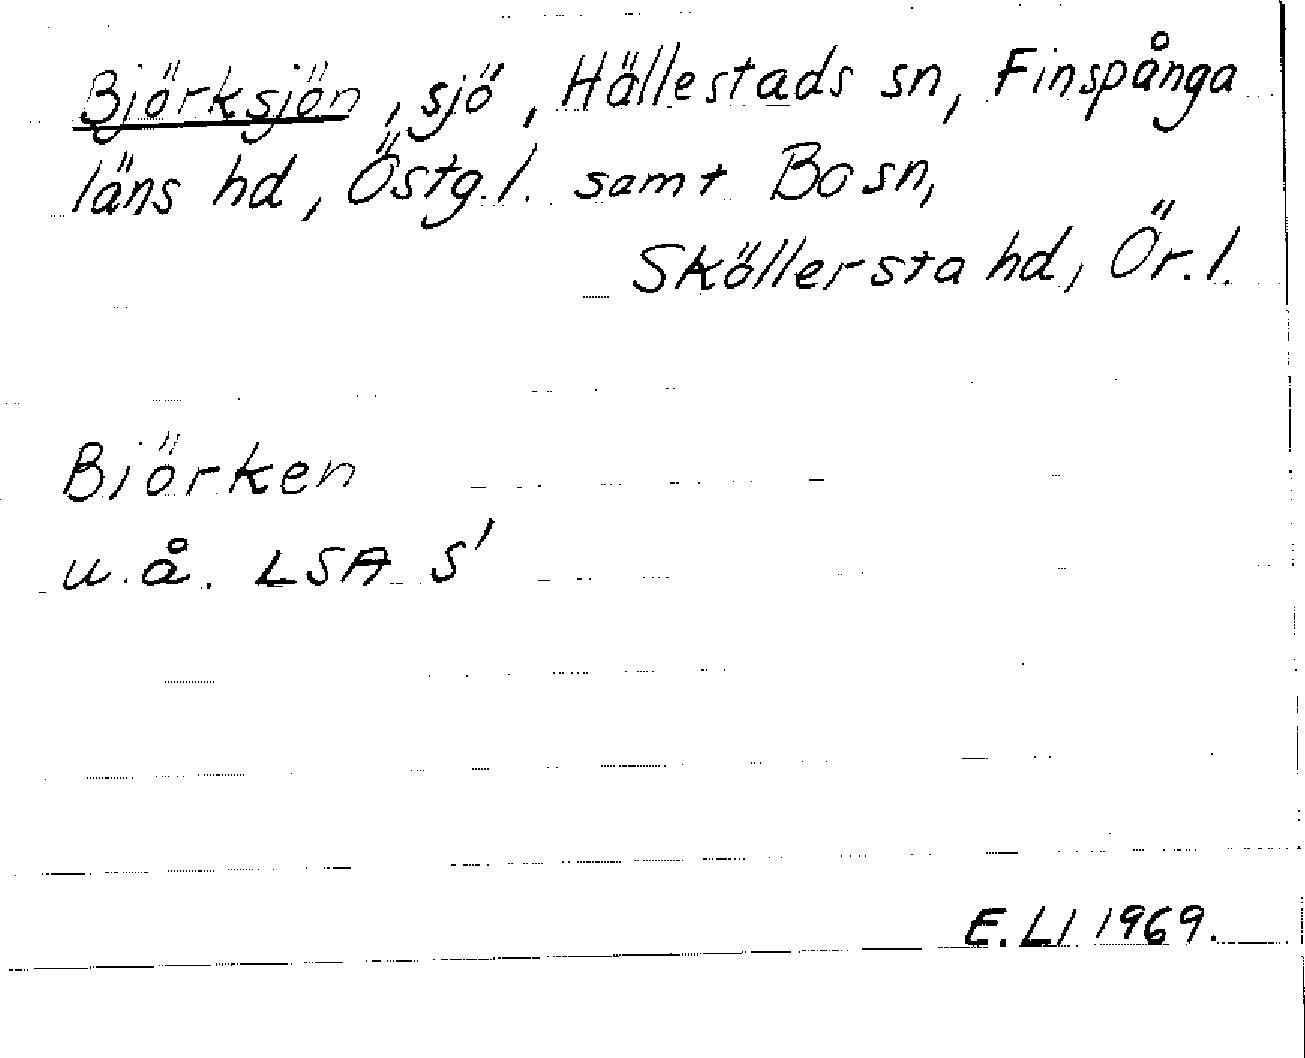 Björksjön, sjö, Hällestads sn, Finspånga
läns hd, Östg.l. samt Bo sn,
Sköllersta hd, Ör.l.
Björken
u.å. LSA S'
E.Ll 1969.